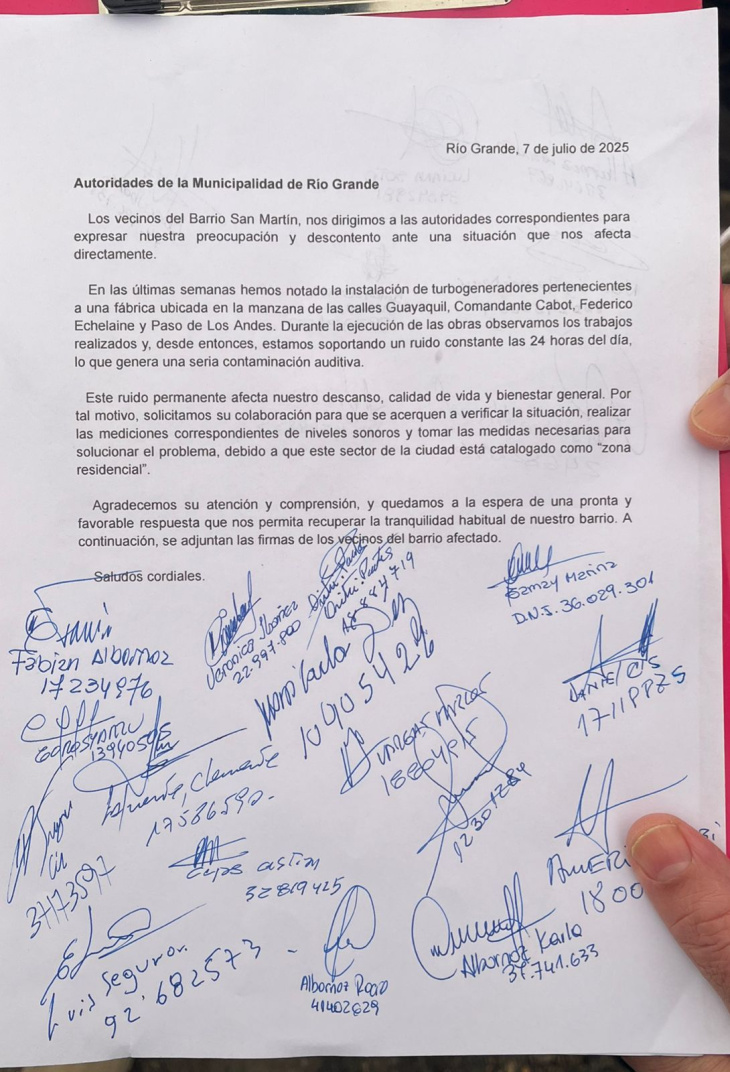 Río Grande, 7 de julio de 2025
Autoridades de la Municipalidad de Río Grande
Los vecinos del Barrio San Martín, nos dirigimos a las autoridades correspondientes para
expresar nuestra preocupación y descontento ante una situación que nos afecta
directamente.
En las últimas semanas hemos notado la instalación de turbogeneradores pertenecientes
a una fábrica ubicada en la manzana de las calles Guayaquil, Comandante Cabot, Federico
Echelaine y Paso de Los Andes. Durante la ejecución de las obras observamos los trabajos
realizados y, desde entonces, estamos soportando un ruido constante las 24 horas del día,
lo que genera una seria contaminación auditiva.
Este ruido permanente afecta nuestro descanso, calidad de vida y bienestar general. Por
tal motivo, solicitamos su colaboración para que se acerquen a verificar la situación, realizar
las mediciones correspondientes de niveles sonoros y tomar las medidas necesarias para
solucionar el problema, debido a que este sector de la ciudad está catalogado como “zona
residencial”.
Agradecemos su atención y comprensión, y quedamos a la espera de una pronta y
favorable respuesta que nos permita recuperar la tranquilidad habitual de nuestro barrio. A
continuación, se adjuntan las firmas de los vecinos del barrio afectado.
Saludos cordiales.
D.N.I. 36.029.301
Fabian Albornoz
17234976
Veronica
22.997.800
18884719
13940595
Clemente
32819425
37173597
Luis Seguror.
92.682573
Albornoz
41402629
Albornoz Karla
37.741.633